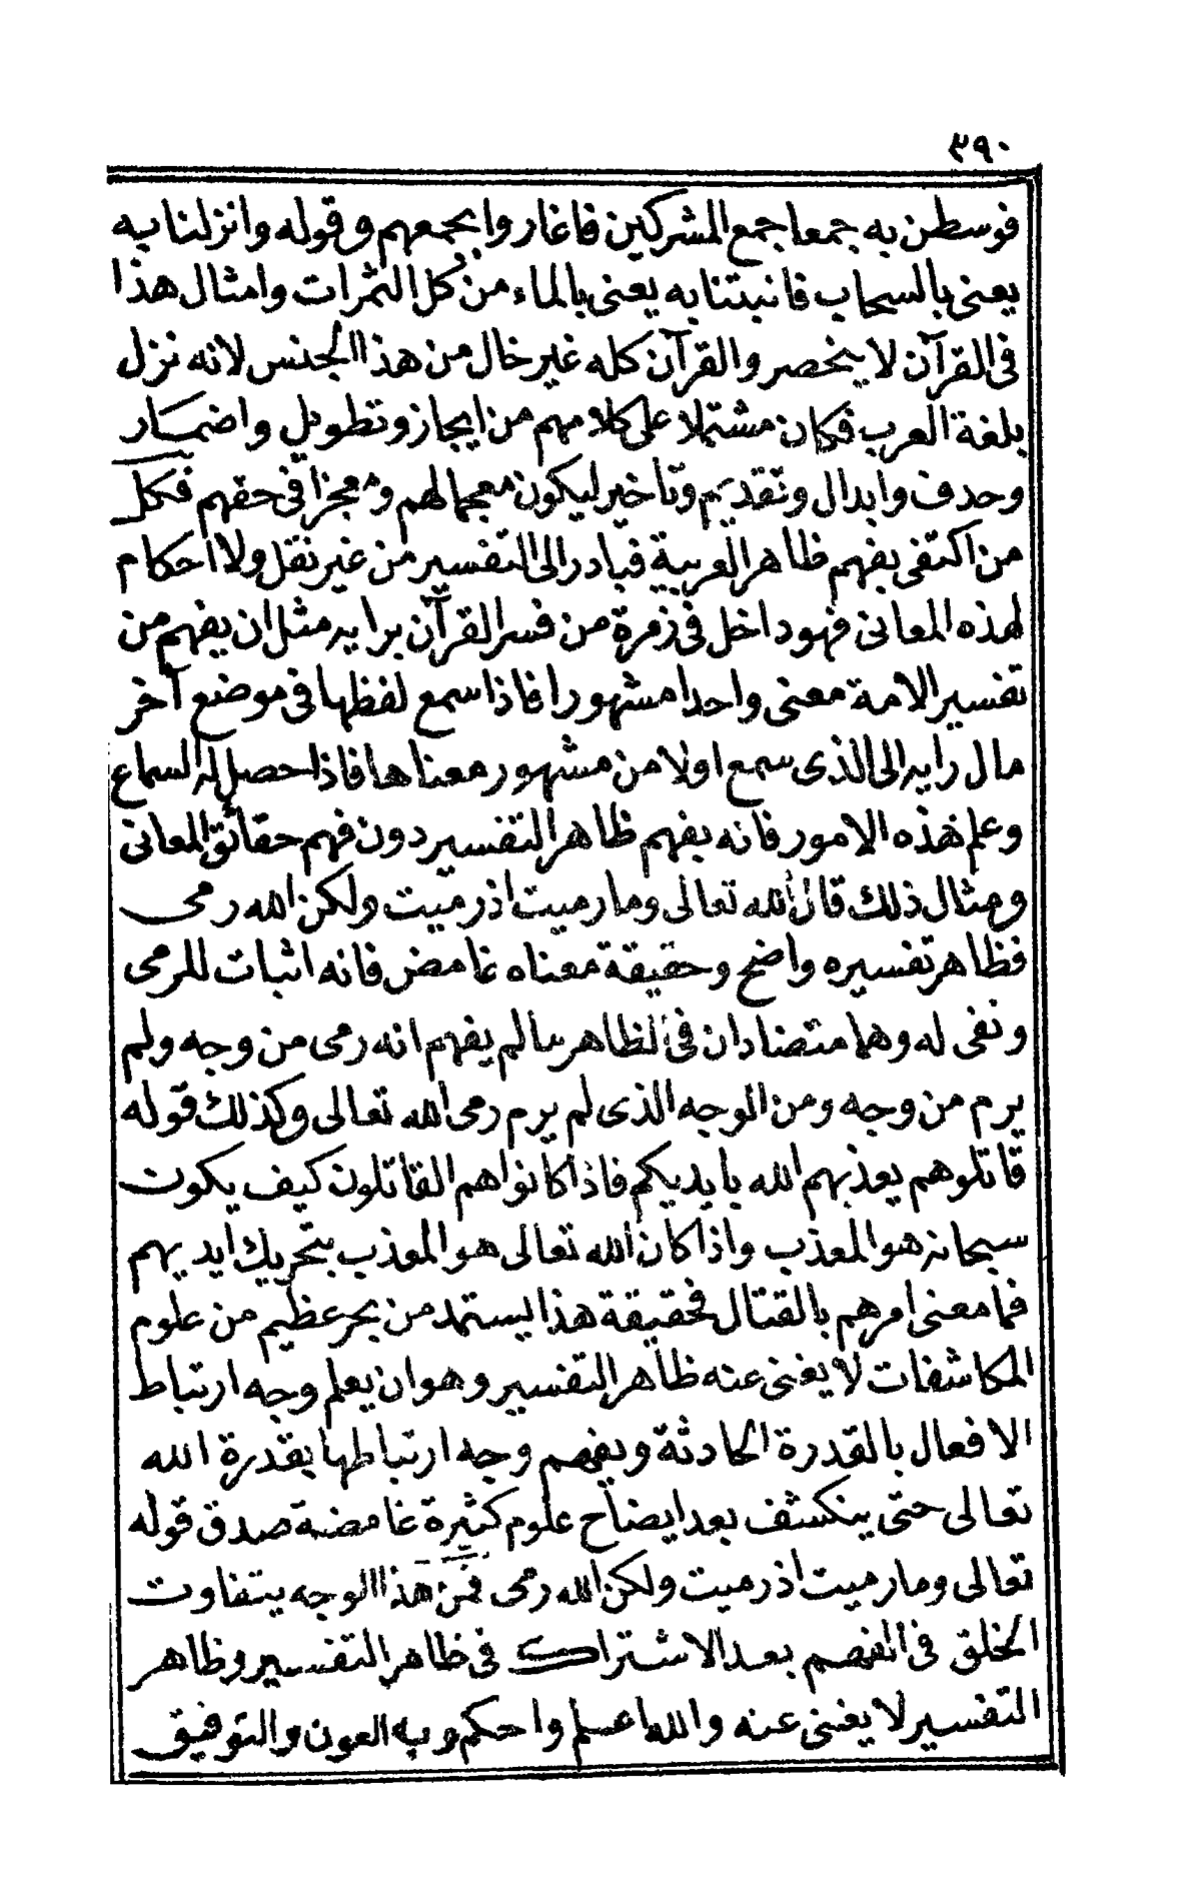 ٣٩٠
فوسطن به جمعا جمع المشركين فاغاروا بجمعهم وقوله وانزلنا به
يعنى بالسحاب فانبتنا به يعنى بالماء من كل الثمرات وامثال هذا
فى القرآن لا ينحصر والقرآن كله غير خال من هذا الجنس لانه نزل
بلغة العرب فكان مشتملا على كلامهم من ايجاز وتطويل واضمار
وحدف وابدال وتقديم وتأخير ليكون معجما لهم ومعجزا فى حقهم فكل
من اكتفى بفهم ظاهر العربية فبادر الى التفسير من غير نقل ولا احكام
لهذه المعانى فهو داخل فى زمرة من فسر القرآن برايه مثل ان يفهم من
تفسير الامة معنى واحدا مشهورا فاذا سمع لفظها فى موضع آخر
مال رايه الى الذى سمع اولا من مشهور معناها فاذا حصل له السماع
وعلم هذه الامور فانه يفهم ظاهر التفسير دون فهم حقائق المعانى
ومثال ذلك قال الله تعالى وما رميت اذ رميت ولكن الله رمى
فظاهر تفسيره واضح وحقيقة معناه غامض فانه اثبات للرمى
ونفى له وهما متضادان فى الظاهر ما لم يفهم انه رمى من وجه ولم
يرم من وجه ومن الوجه الذى لم يرم رمى الله تعالى وكذلك قوله
قاتلوهم يعذبهم الله بايديكم فاذا كانوا هم القاتلون كيف يكون
سبحانه هو المعذب واذا كان الله تعالى هو المعذب بتحريك ايديهم
فما معنى امرهم بالقتال فحقيقة هذا يستمد من بحر عظيم من علوم
المكاشفات لا يغنى عنه ظاهر التفسير وهو ان يعلم وجه ارتباط
الافعال بالقدرة الحادثة ويفهم وجه ارتباطها بقدرة الله
تعالى حتى ينكشف بعد ايضاح علوم كثيرة غامضة صدق قوله
تعالى وما رميت اذ رميت ولكن الله رمى فمن هذا الوجه يتفاوت
الخلق فى الفهم بعد الاشتراك فى ظاهر التفسير وظاهر
التفسير لا يغنى عنه والله اعلم واحكم وبه العون والتوفيق